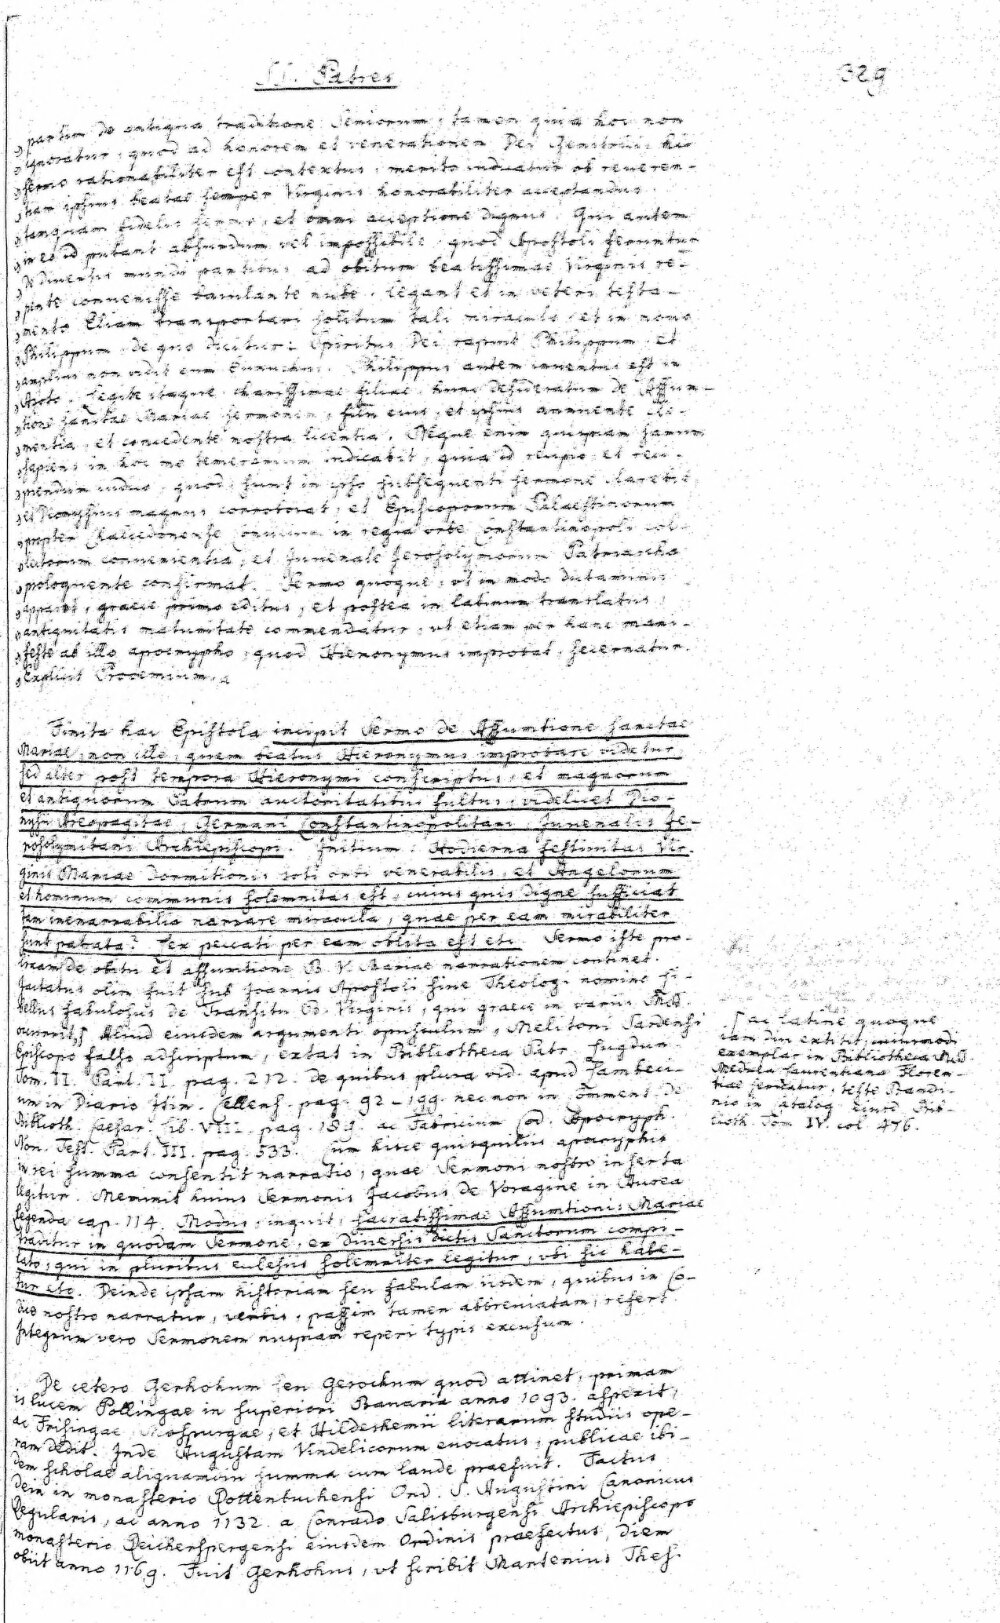 SS. Patres
329
„partim de antiqua traditione Seniorum; tamen quia hoc non
„ignoratur, quod ad honorem et venerationem Dei Genitricis hic
„sermo rationabiliter est contextus, merito iudicatur ob reveren-
„tiam ipsius beatae semper Virginis honorabiliter acceptandus,
„tanquam fidelis sermo, et omni acceptione dignus. Qui autem
„in eo id putant absurdum vel impossibile, quod Apostoli feruntur
„de diversis mundi partibus ad obitum beatissimae Virginis re-
„pente convenisse baiulante nube, legant et in veteri testa-
„mento Eliam transportari solitum tali miraculo, et in novo
„Philippum, de quo dicitur: Spiritus Dei rapuit Philippum, et
„amplius non vidit eum Eunuchus. Philippus autem inventus est in
„Azoto. Legite itaque, charissimae filiae, hunc desideratum de Assum-
„tione sanctae Mariae sermonem, filii eius, et ipsius annuente cle-
„mentia, et concedente nostra licentia. Neque enim quispiam sanum
„sapiens in hoc me temerarium iudicabit, quia id recipio, et reci-
„piendum iudico, quod, sicut in ipso subsequenti sermone claret,
„et Dionysius magnus corroborat, et Episcoporum Palaestinorum
„propter Chalcedonense Concilium in regia urbe Constantinopoli col-
„lectorum convenientia, et Juvenale Jerosolymorum Patriarcha
„proloquente confirmat. Sermo quoque, ut in modo dictaminis
„apparet, graece primo editus, et postea in latinum translatus,
„antiquitatis maturitate commendatur, ut etiam per hanc mani-
„feste ab illo apocrypho, quod Hieronymus improbat, secernatur.
„Explicit Prooemium.„
Finita hac Epistola incipit Sermo de Assumtione sanctae
Mariae, non ille, quem beatus Hieronymus improbare videtur,
sed alter post tempora Hieronymi conscriptus, et magnorum
et antiquorum Patrum auctoritatibus fultus, videlicet Dio-
nysii Areopagitae, Germani Constantinopolitani, Juvenalis Je-
rosolymitani Archiepiscopi. Initium: Hodierna festivitas Vir-
ginis Mariae dormitionis toti orbi venerabilis, et Angelorum
et hominum communis solemnitas est, cuius quis digne sufficiat
tam inenarrabilia narrare miracula, quae per eam mirabiliter
sunt patrata? Lex peccati per eam oblita est etc. Sermo iste pro-
lixam de obitu et assumtione B. V. Mariae narrationem continet.
Iactatus olim fuit sub Joannis Apostoli sive Theologi nomine li-
bellus fabulosus de Transitu B. Virginis, qui graece in variis Mss.
occurrit,ſ Aliud eiusdem argumenti opusculum, Melitoni Sardensi
Episcopo falso adscriptum, extat in Bibliotheca Patr. Lugdun.
Tom. II. Part. II. pag. 212. de quibus plura vid. apud Lambeci-
um in Diario Itin. Cellens. pag. 92-199. nec non in Comment. de
Biblioth. Caesar. lib. VIII. pag. 181. ac Fabricium Cod. Apocryph.
Nov. Test. Part. III. pag. 533. Cum hisce quisquiliis apocryphis
in rei summa consentit narratio, quae Sermoni nostro inserta
legitur. Meminit huius Sermonis Jacobus de Voragine in Aurea
legenda cap. 114. Modus, inquit, sacratissimae Assumtionis Mariae
traditur in quodam Sermone, ex diversis dictis Sanctorum compi-
lato, qui in pluribus ecclesiis solemniter legitur, ubi sic habe-
tur etc. Deinde ipsam historiam seu fabulam iisdem, quibus in Co-
dice nostro narratur, verbis, passim tamen abbreviatam, refert.
Integrum vero Sermonem nuspiam reperi typis excusum.
ſ ac latine quoque
iam diu extitit, cuiusmodi
exemplar in Bibliotheca Mss.
Medicea Laurentiana Floren-
tiae servatur, teste Bandi-
nio in Catalog. eiusd. Bib-
lioth. Tom. IV. col. 476.
De cetero Gerhohum seu Gerochum quod attinet, primam
is lucem Pollingae in superiori Bavaria anno 1093. aspexit,
ac Frisingae, Mospurgae, et Hildeshemii literarum studiis ope-
ram dedit. Inde Augustam Vindelicorum evocatus, publicae ibi-
dem scholae aliquamdiu summa cum laude praefuit. Factus
dein in monasterio Rottenbuchensi Ord. S. Augustini Canonicus
Regularis, ac anno 1132. a Conrado Salisburgensi Archiepiscopo
monasterio Reicherspergensi eiusdem Ordinis praefectus, diem
obiit anno 1169. Fuit Gerhohus, ut scribit Martenius Thes.